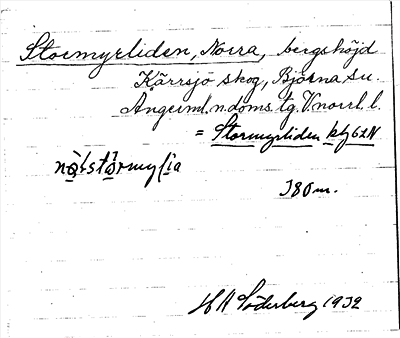 Stormyrliden, Norra, bergshöjd
Kärrsjö skog, Björna sn.
Ångerml. n. doms. tg. V.norrl. l.
= Stormyrliden kbl 62 N
380 m.
H A Söderberg 1932